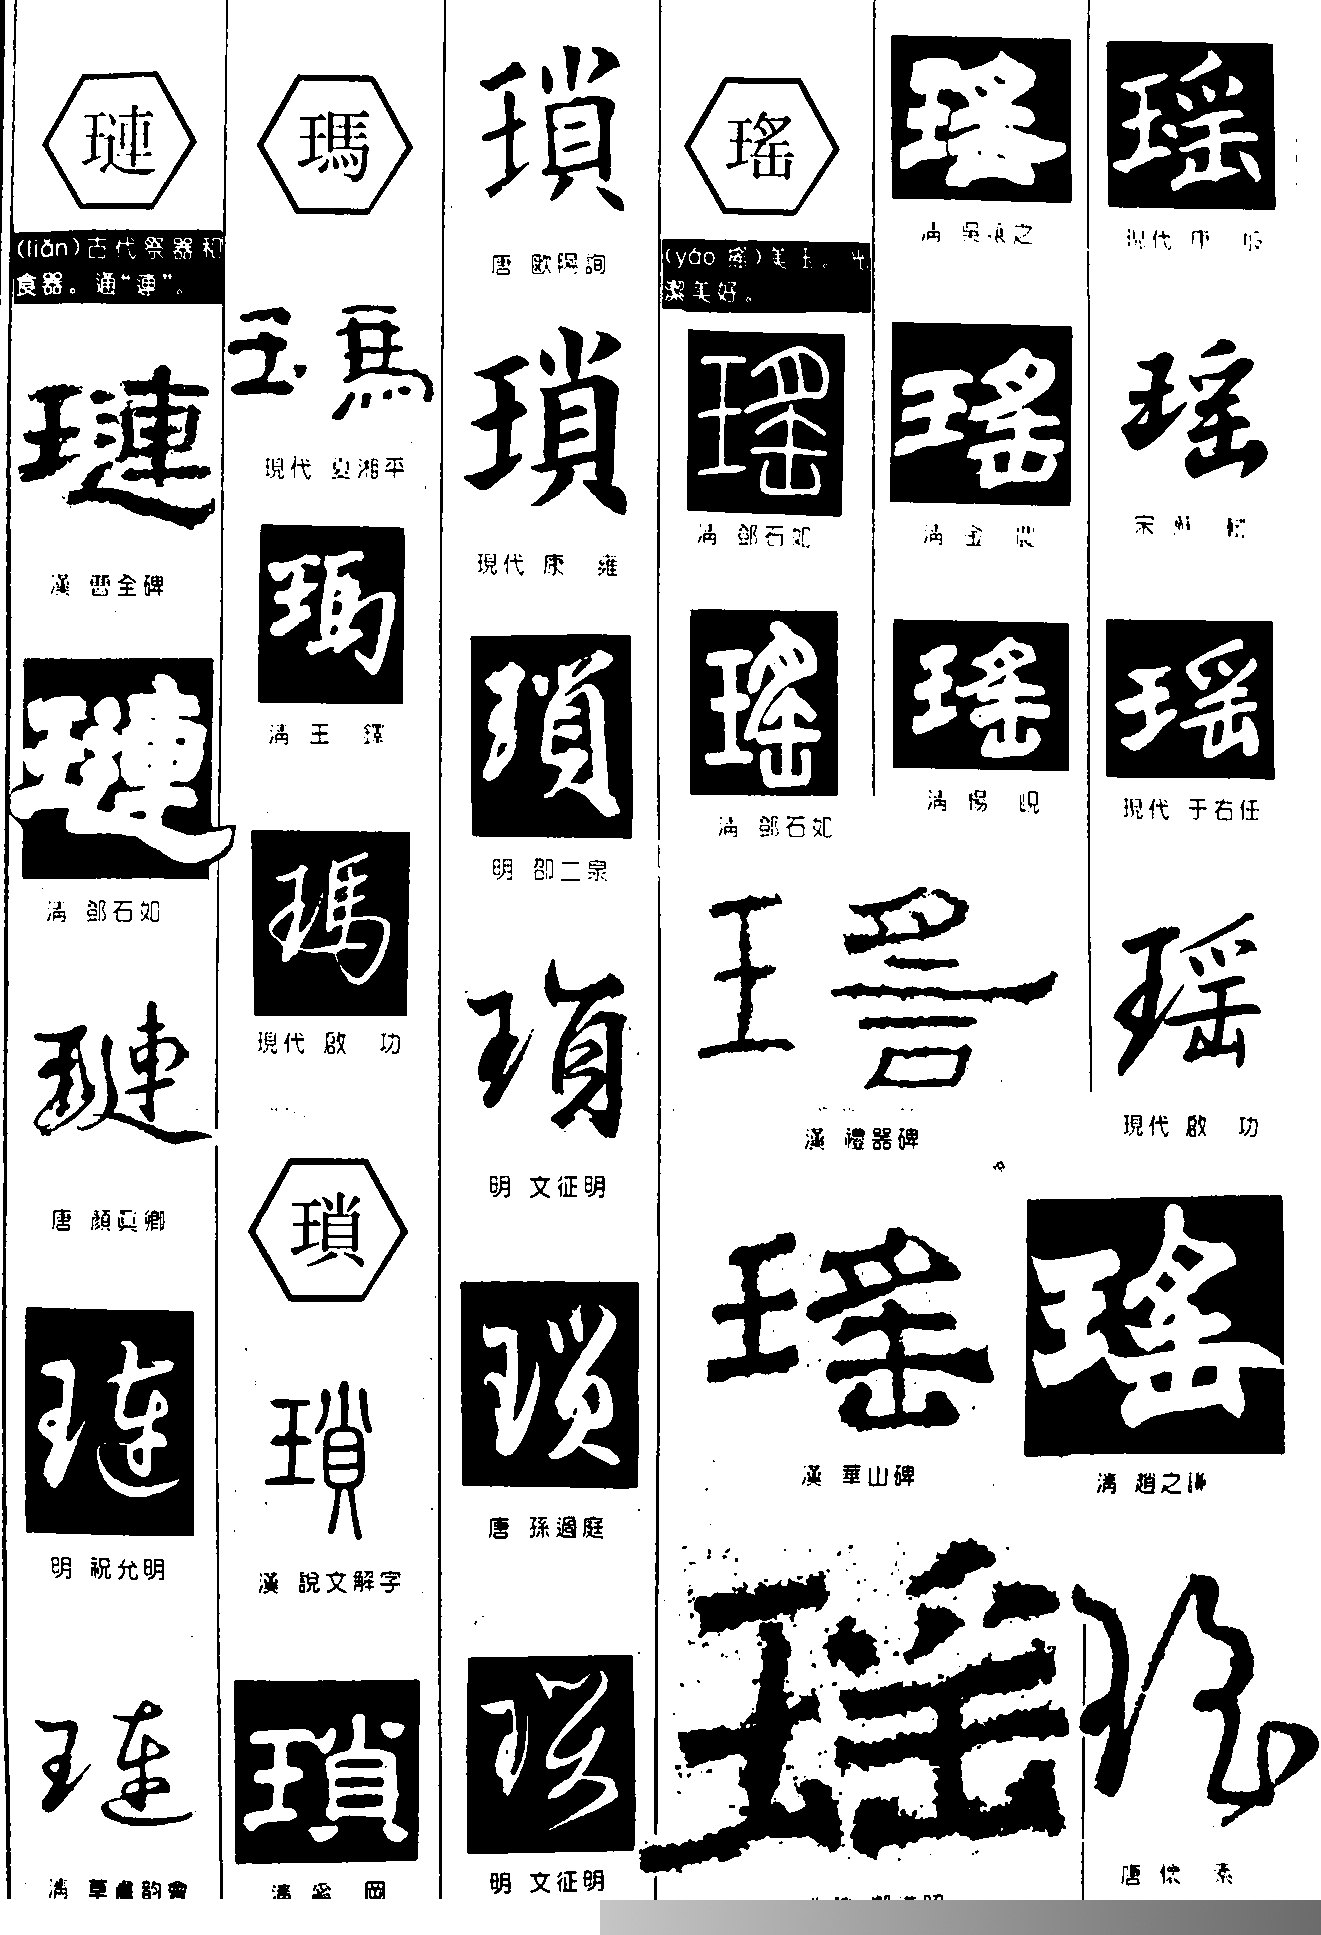 璉
(liǎn)古代祭器和
食器。通“連”。
璉
漢 曹全碑
璉
清 鄧石如
璉
唐 顏真卿
璉
明 祝允明
璉
清 草書韵會
瑪
瑪
現代 夏湘平
瑪
清 王 鐸
瑪
現代 啟 功
瑣
瑣
漢 說文解字
瑣
瑣
唐 歐陽詢
瑣
現代 康 雍
瑣
明 邵二泉
瑣
明 文征明
瑣
唐 孫過庭
瑣
明 文征明
瑤
(yáo 窰)美玉。光
潔美好。
瑤
清 鄧石如
瑤
清 鄧石如
瑤
漢 禮器碑
瑤
漢 華山碑
瑤
瑤
清 吳讓之
瑤
清 金 農
瑤
清 楊 峴
瑤
清 趙之謙
瑤
現代 康 殷
瑤
宋 蘇 軾
瑤
現代 于右任
瑤
現代 啟 功
瑤
唐 懷 素